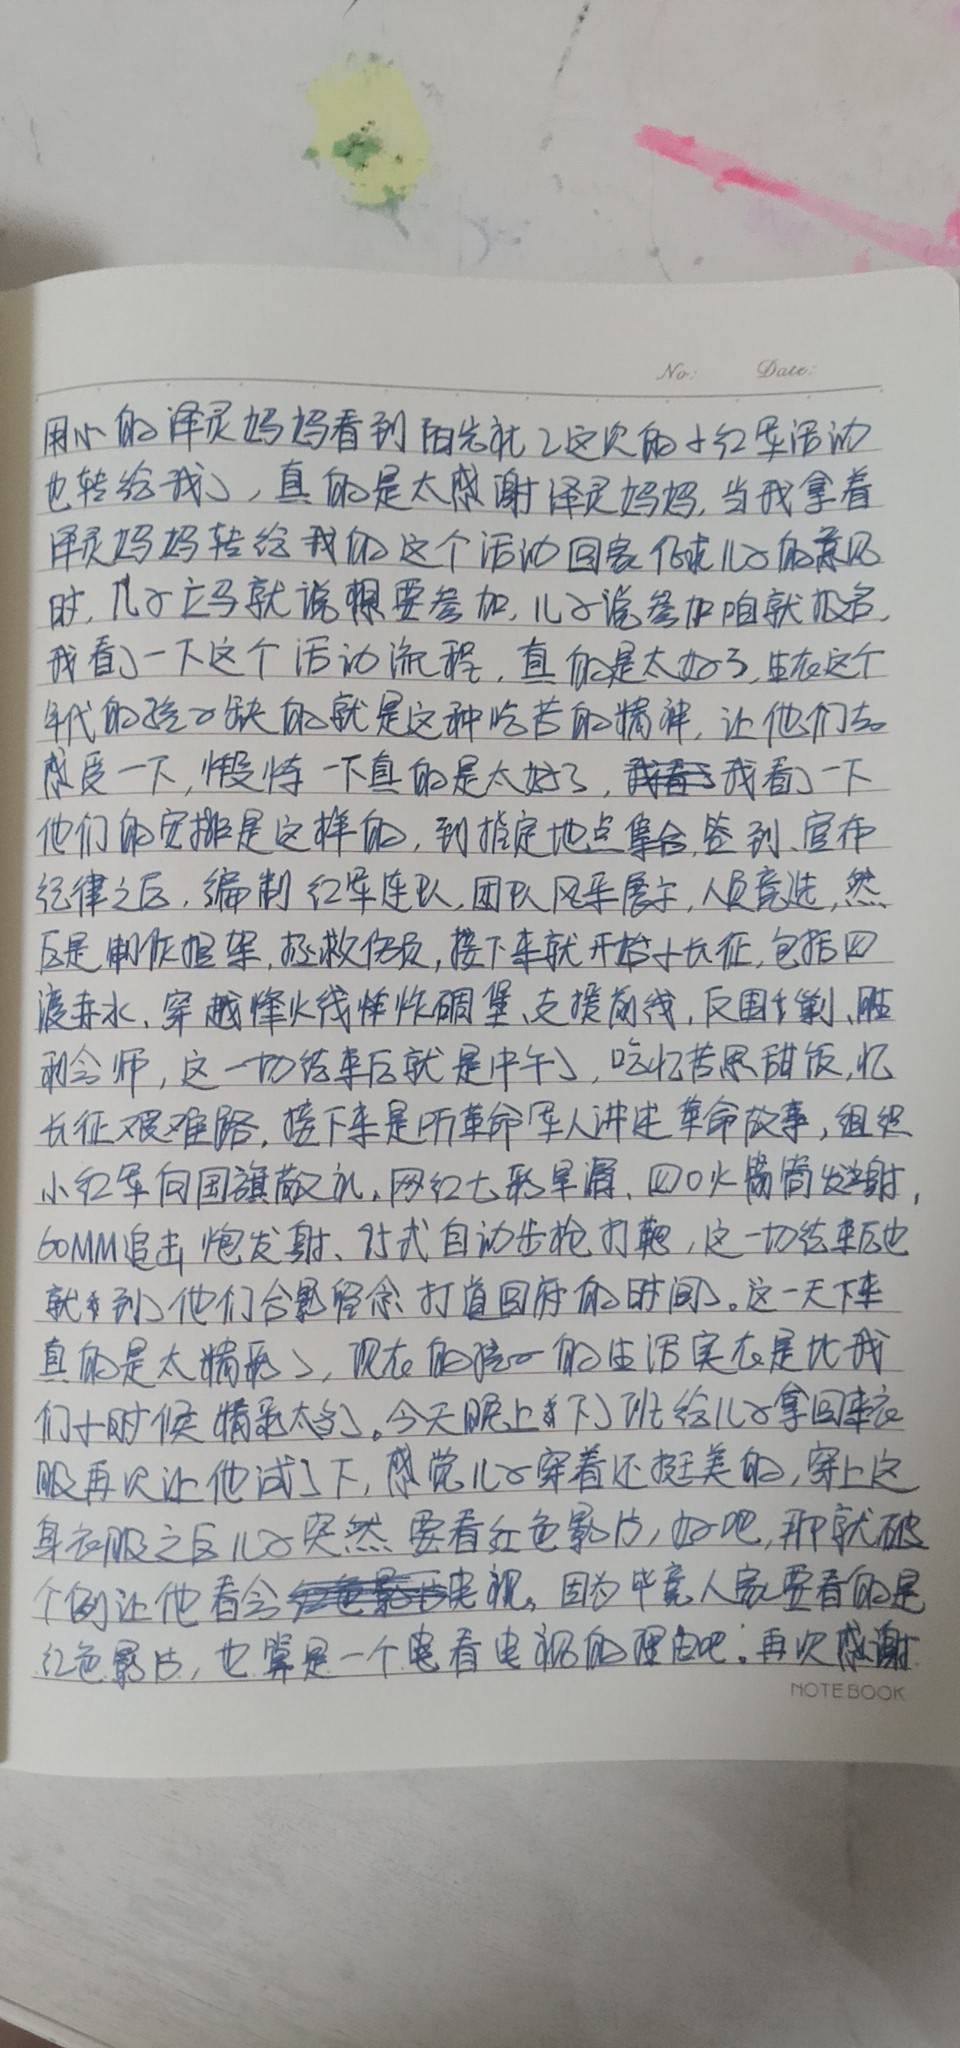 No: Date:
用心的泽灵妈妈看到阳光礼乙这次的小红军活动
也转给我了，真的是太感谢泽灵妈妈，当我拿着
泽灵妈妈转给我的这个活动回家征求儿子的意见
时，儿子立马就说想要参加，儿子说参加咱就报名，
我看了一下这个活动流程，真的是太好了，生在这个
年代的孩子缺的就是这种吃苦的精神，让他们去
感受一下，煅炼一下真的是太好了，我看了一下
他们的安排是这样的，到指定地点集合，签到、宣布
纪律之后，编制红军连队，团队风采展示，人员竞选，然
后是制作担架，拯救伤员，接下来就开始小长征，包括四
渡赤水、穿越烽火线炸碉堡、支援前线，反围剿、胜
利会师，这一切结束后就是中午了，吃忆苦思甜饭，忆
长征艰难路，接下来是听革命军人讲述革命故事，组织
小红军向国旗敬礼、网红七彩旱滑、四0火箭筒发射，
60MM追击炮发射、81式自动步枪打靶，这一切结束后也
就到了他们合影留念打道回府的时间了。这一天下来
真的是太精彩了，现在的孩子的生活实在是比我
们小时候精彩太多了。今天晚上下了班给儿子拿回来衣
服再次让他试了下，感觉儿子穿着还挺美的，穿上这
身衣服之后儿子突然要看红色影片，好吧，那就破
个例让他看会电视。因为毕竟人家要看的是
红色影片，也算是一个看电视的理由吧。再次感谢
NOTEBOOK